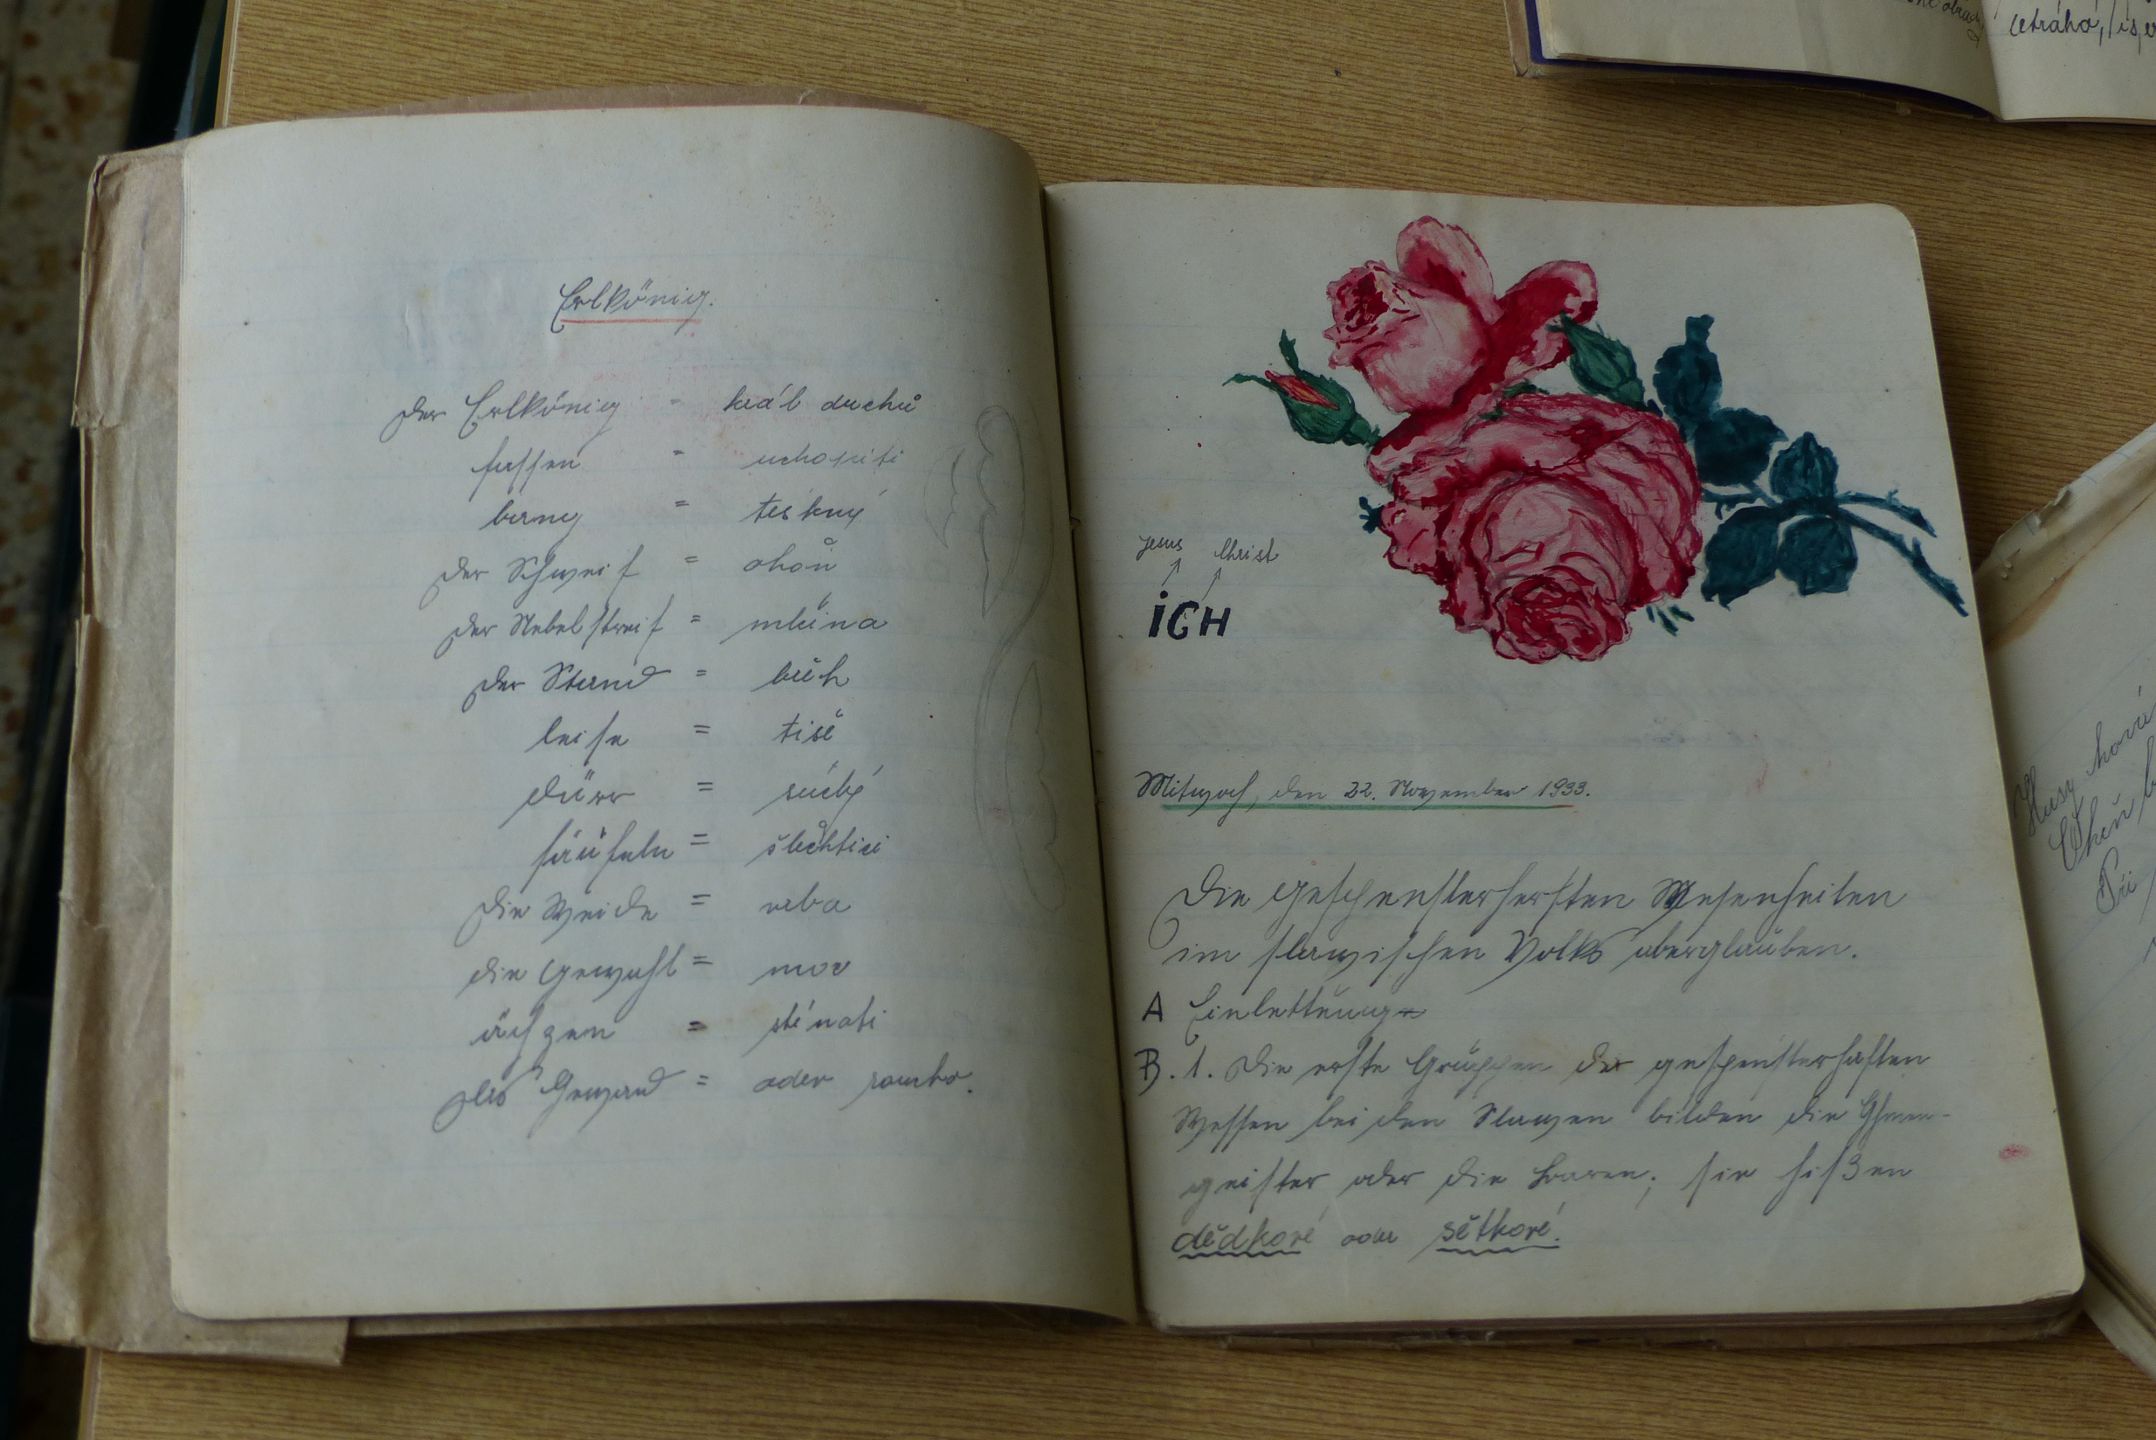 Erlkönig.
der Erlkönig - král duchů
fassen - uchopiti
bang = těskný
der Schweif = ohon
der Nebelstreif = mlžina
der Strand = břeh
leise = tiše
dürr = suchý
säuseln = šelestiti
die Weide = vrba
die Gewalt = moc
ächzen = sténati
das Gewand = oděv roucho.
Jesus Christ
iCH
Mitwoch, den 22. November 1933.
Die gespensterhaften Wesenheiten
im slawischen Volks aberglauben.
A Einleitung
B. 1. Die erste Gruppen der gespensterhaften
Wessen bei den Slawen bilden die Ahnen-
geister oder die Laren; sie hißen
dědkové oder sětkové.
cetráho,
Husy
Oheň
Při